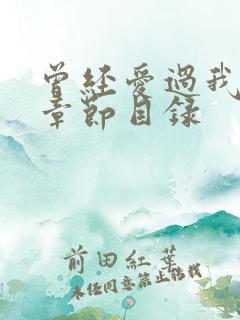 曾经爱過我
章節目錄
前田紅葉
未经同意禁止转载